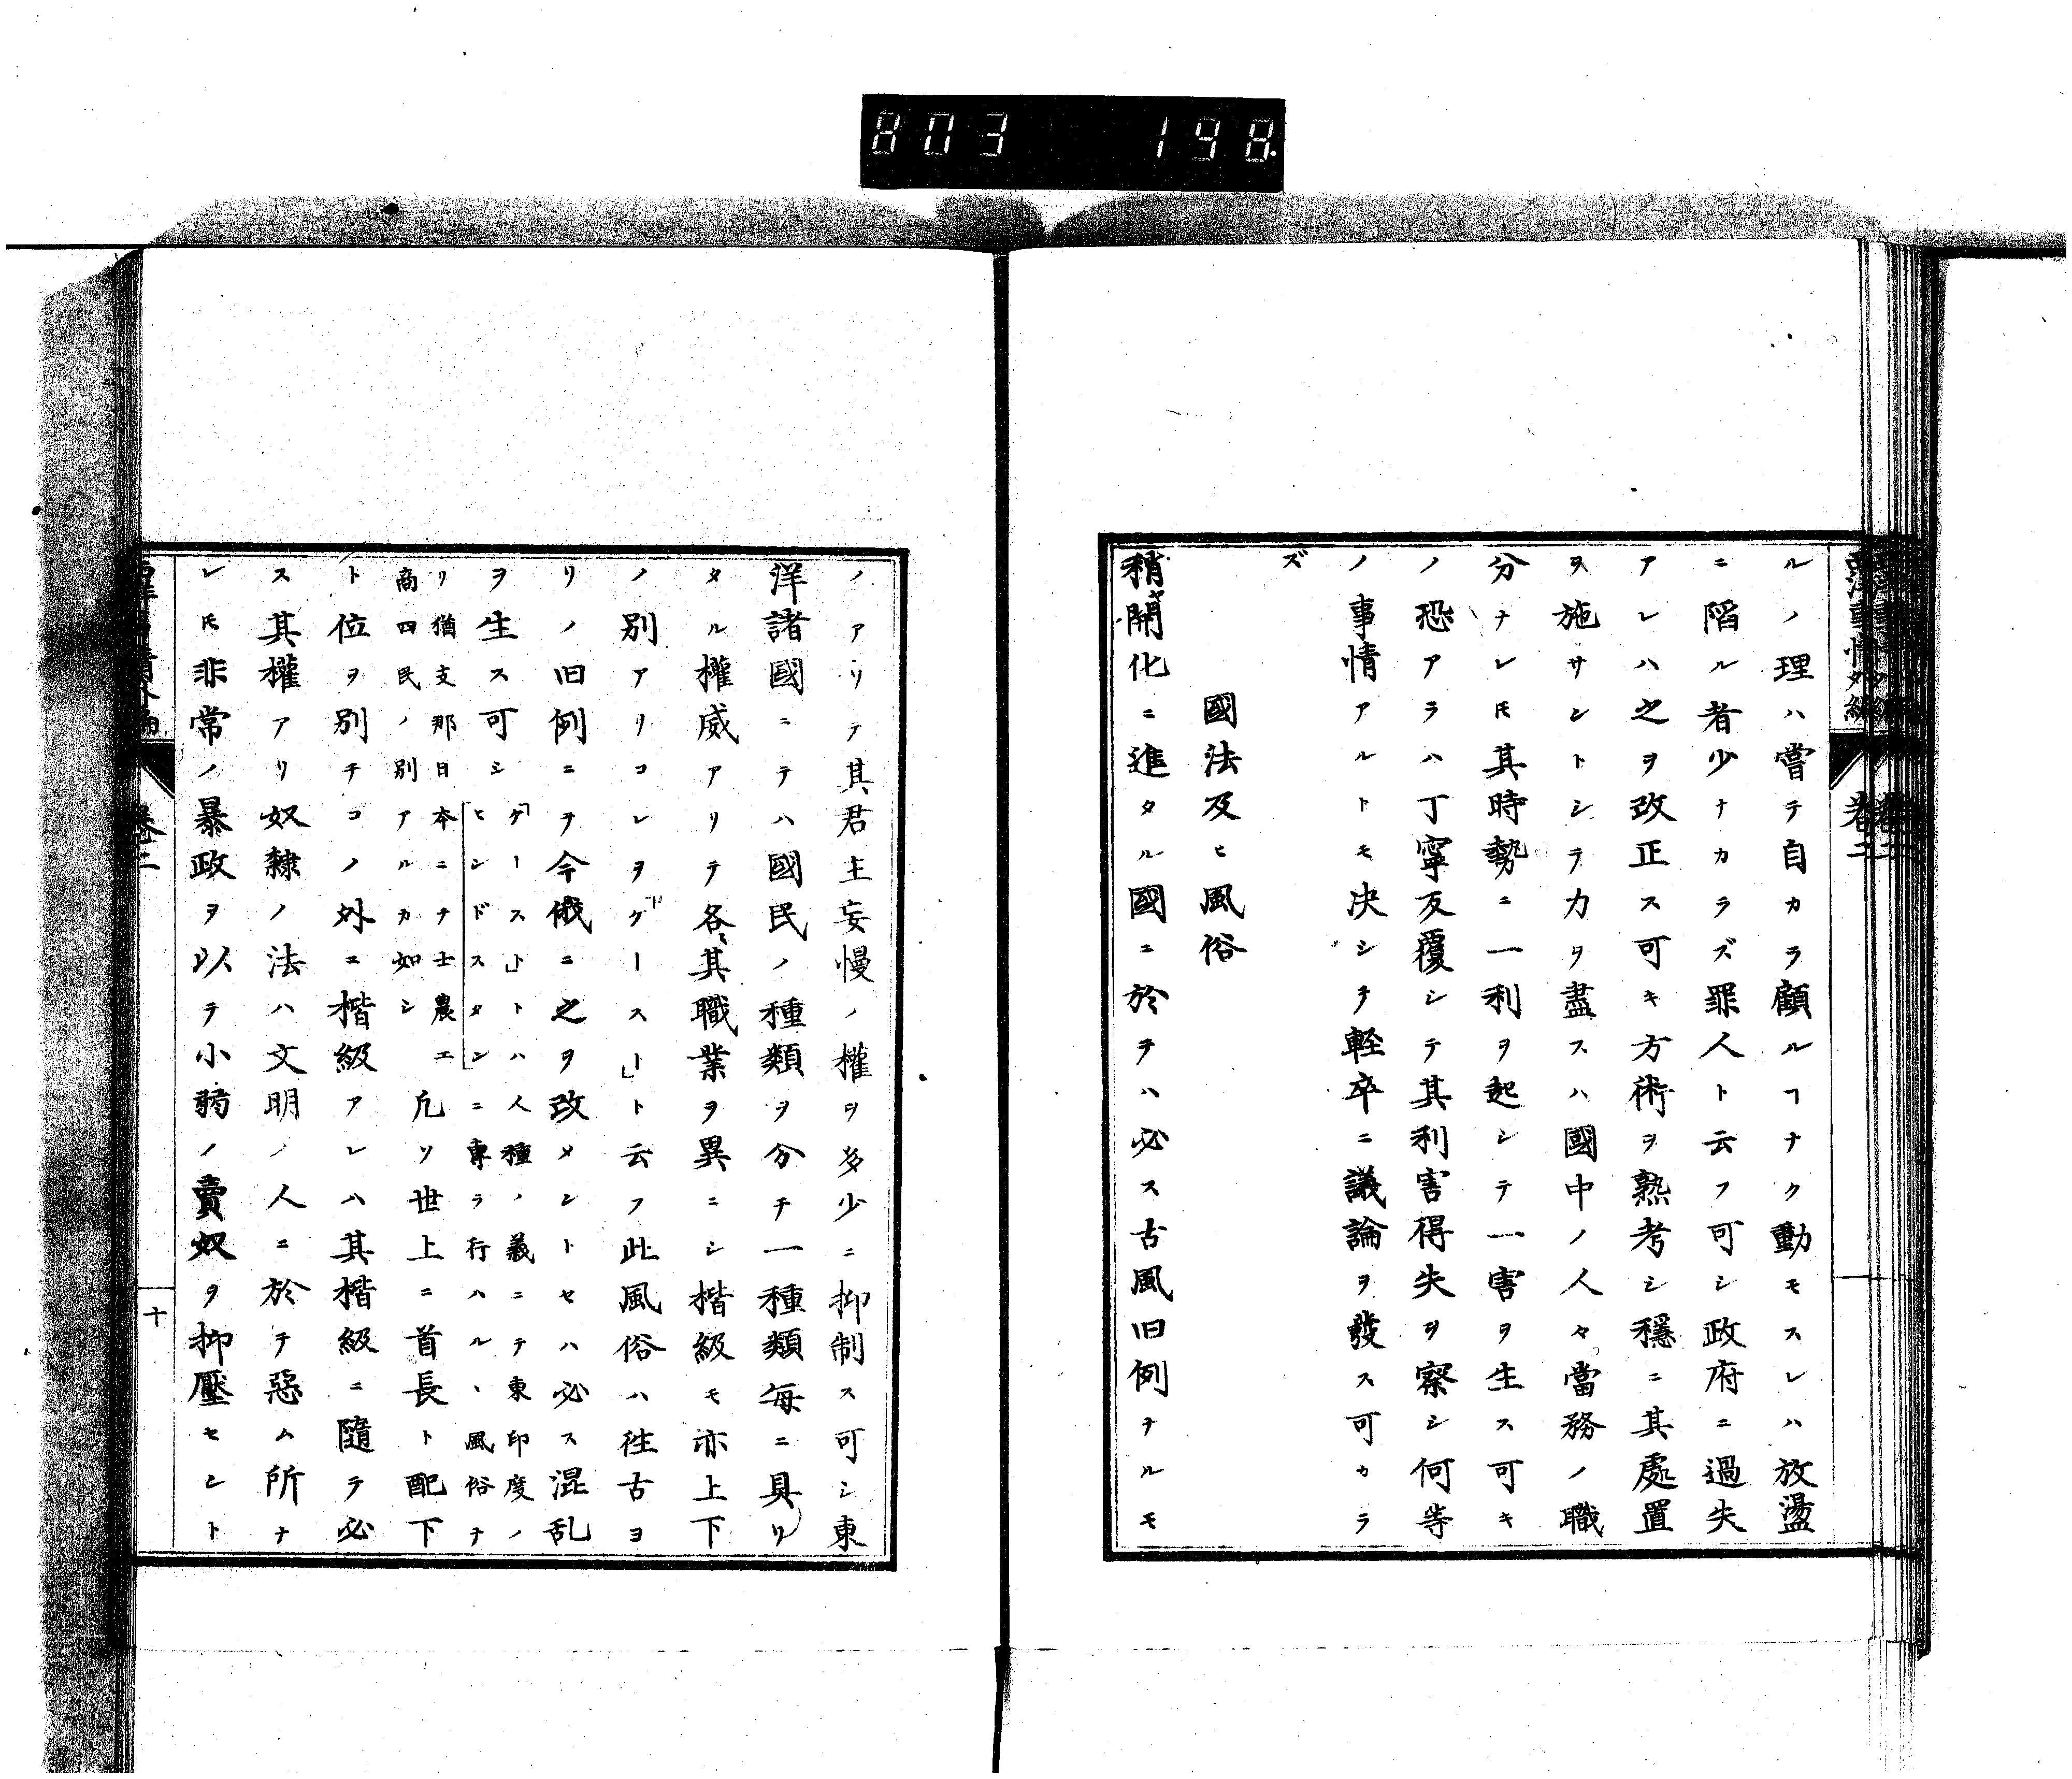 803 198
ルノ理ハ嘗テ自カラ顧ルヿナク動モスレハ放盪
ニ陷ル者少ナカラズ罪人ト云フ可シ政府ニ過失
アレハ之ヲ改正ス可キ方術ヲ熟考シ穩ニ其處置
ヲ施サントシテ力ヲ盡スハ國中ノ人々當務ノ職
分ナレ𪜈其時勢ニ一利ヲ起シテ一害ヲ生ス可キ
ノ恐アラハ丁寧反覆シテ其利害得失ヲ察シ何等
ノ事情アルトモ决シテ軽卒ニ議論ヲ發ス可カラ
ズ
國法及ヒ風俗
稍ヤ開化ニ進タル國ニ於テハ必ス古風旧例ナルモ
ノアリテ其君主妄慢ノ權ヲ多少ニ抑制ス可シ東
洋諸國ニテハ國民ノ種類ヲ分チ一種類毎ニ具リ
タル權威アリテ各〻其職業ヲ異ニシ楷級モ亦上下
ノ別アリコレヲ「ゲースト」ト云フ此風俗ハ徃古ヨ
リノ旧例ニテ今俄ニ之ヲ改メントセハ必ス混乱
ヲ生ス可シ
「ゲースト」トハ人種ノ義ニテ東印度ノ
ヒンドスタンニ專ラ行ハルヽ風俗ナ
リ猶支那日本ニテ士農工
商四民ノ別アルカ如シ
凢ソ世上ニ首長ト配下
ト位ヲ別チコノ外ニ楷級アレハ其楷級ニ隨テ必
ス其權アリ奴隸ノ法ハ文明ノ人ニ於テ惡ム所ナ
レ𪜈非常ノ暴政ヲ以テ小弱ノ賣奴ヲ抑壓セント
卷二
十